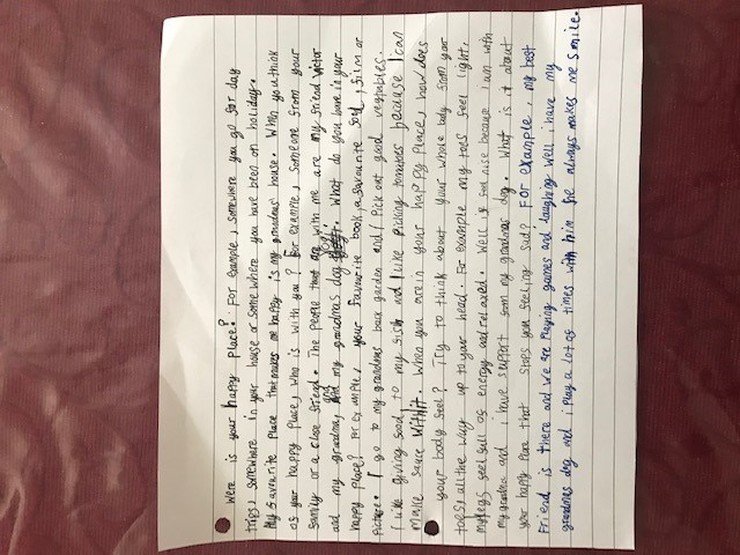 Were is your happy place? For example, somewhere you go for day
trips, somewhere in your house or some where you have been on holiday.
My favourite place that makes me happy is my grandmas' house. When you think
of your happy place, who is with you? For example, someone from your
family or a close friend. The people that are with me are my friend Victor
and my grandma, and my grandmas dog Yogi. What do you have in your
happy place? For example, your favourite book, a favourite food, film or
picture. I go to my grandmas back garden and I pick out good vegtables.
I like giving food to my fish and I like picking tomatoes because I can
make sauce with it. When you are in your happy place, how does
your body feel? Try to think about your whole body from your
toes, all the way up to your head. For example my toes feel light,
my legs feel full of energy and relaxed. Well i feel nise because i am with
my grandma and i have support from my grandmas dog. What is it about
your happy place that stops you feeling sad? For example, my best
Friend is there and we are playing games and laughing well i have my
grandmas dog and i play a lot of times with him he always makes me smile.